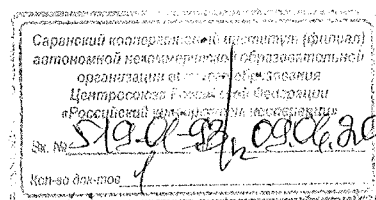 Саранский кооперативный институт (филиал)
автономной некоммерческой образовательной
организации высшего образования
Центросоюза Российской Федерации
«Российский университет кооперации»
Вх. № 519-01-93/ 09.06.20
Кол-во док-тов 1